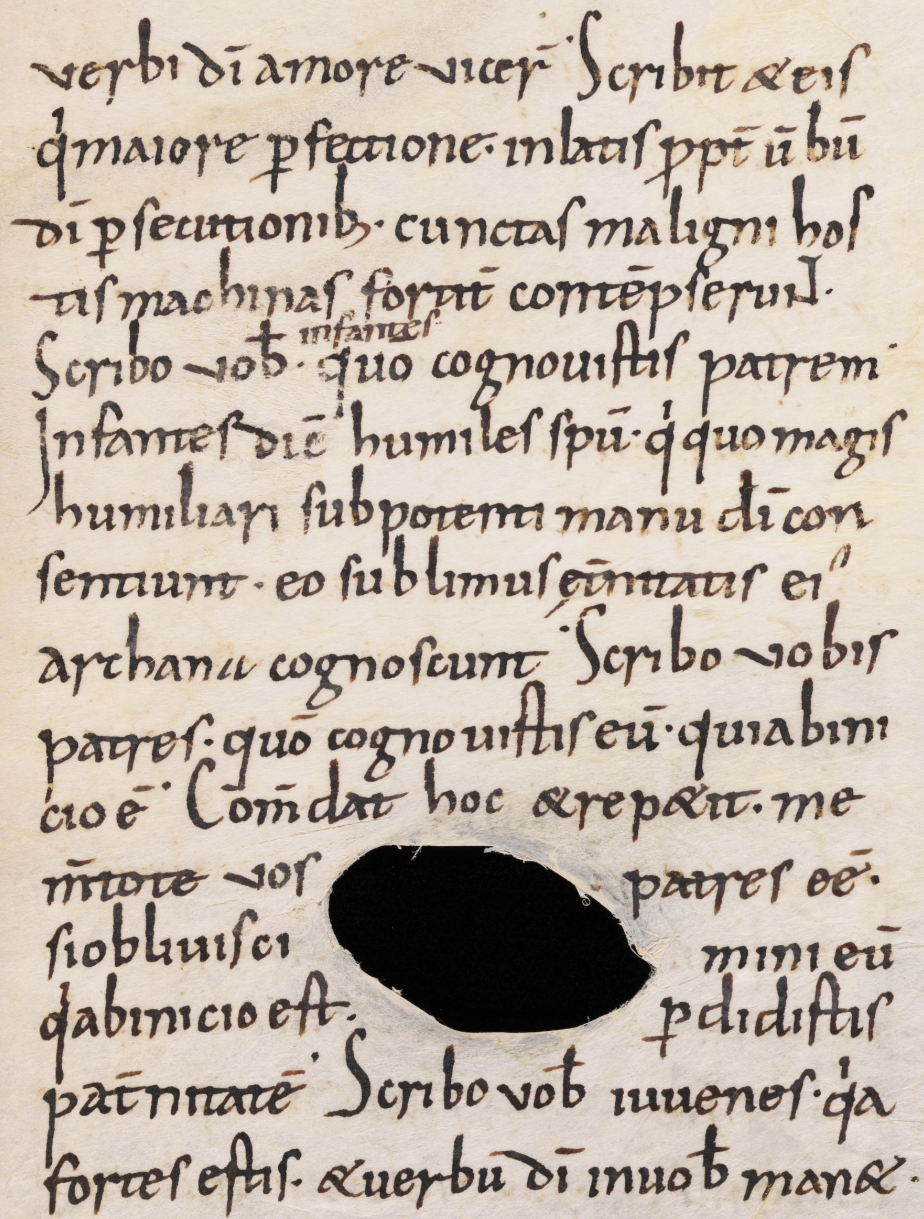 verbi dī amore vicer̄ Scribit & eis
qͥ maiore ꝑfectione· inlatis ꝓpt̄ ū bū
dī ꝑsecutionib;· cunctas maligni hos
tis machinas fortit̄ contēpserunt·
infantes
Scribo vob̄· quo cognovistis patrem
Infantes diē humiles spū· qͥ quo magis
humiliari sub potenti manu dī con
sentiunt· eo sublimus et̄nitatis ei᾽
archana cognoscunt Scribo vobis
patres· quō cognovistis eū· qui ab ini
cio ē Com̄dat hoc & rep&it· me
m̄tote vos patres eē·
si oblivisci mini eū
qͥ ab inicio est· ꝑdidistis
pat̄nitatē Scribo vob̄ iuvenes· qͥa
fortes estis· & verbū dī in vob̄ man&·